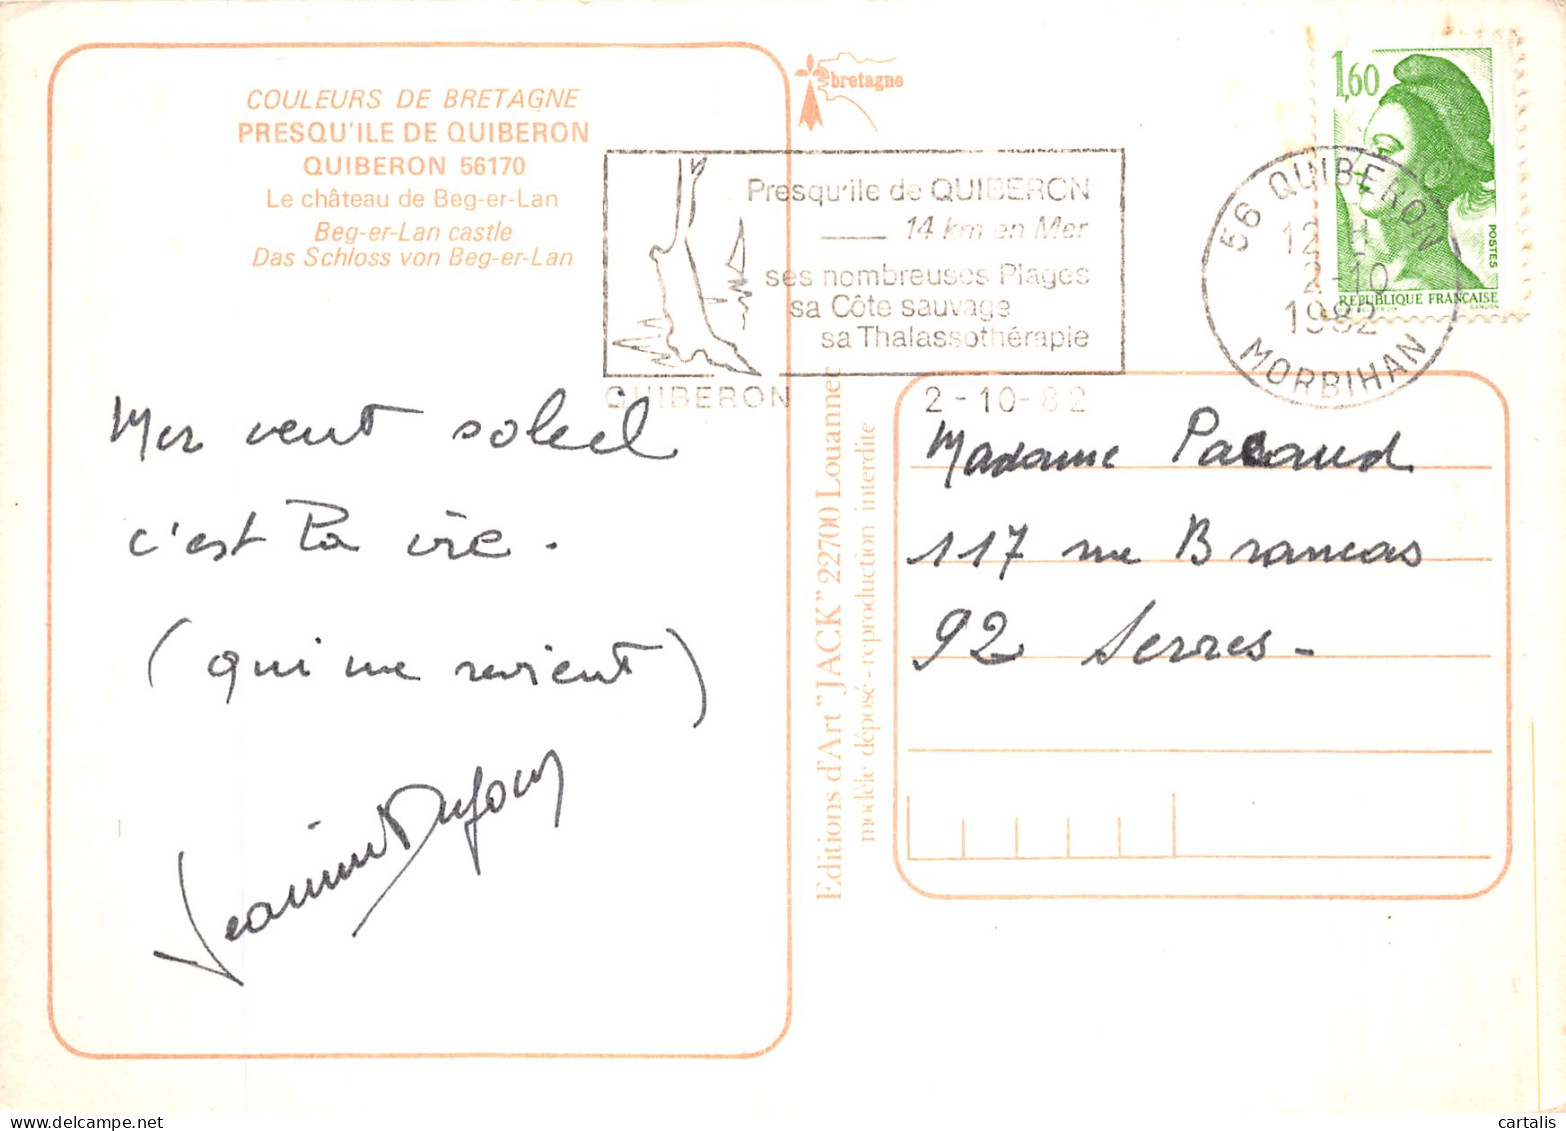 COULEURS DE BRETAGNE
PRESQU'ILE DE QUIBERON
QUIBERON 56170
Le château de Beg-er-Lan
Beg-er-Lan castle
Das Schloss von Beg-er-Lan
bretagne
1,60
POSTES
REPUBLIQUE FRANÇAISE
GANDON
Presqu'ile de QUIBERON
14 km en Mer
ses nombreuses Plages
sa Côte sauvage
sa Thalassothérapie
QUIBERON
2-10-82
56 QUIBERON
12 H
2-10
1982
MORBIHAN
Mer vent soleil
c'est la vie.
(qui me revient)
Jeannine Dufour
Editions d'Art "JACK" 22700 Louannec
modèle déposé - reproduction interdite
Madame Pacaud
117 rue Brancas
92 Serres -
cartalis